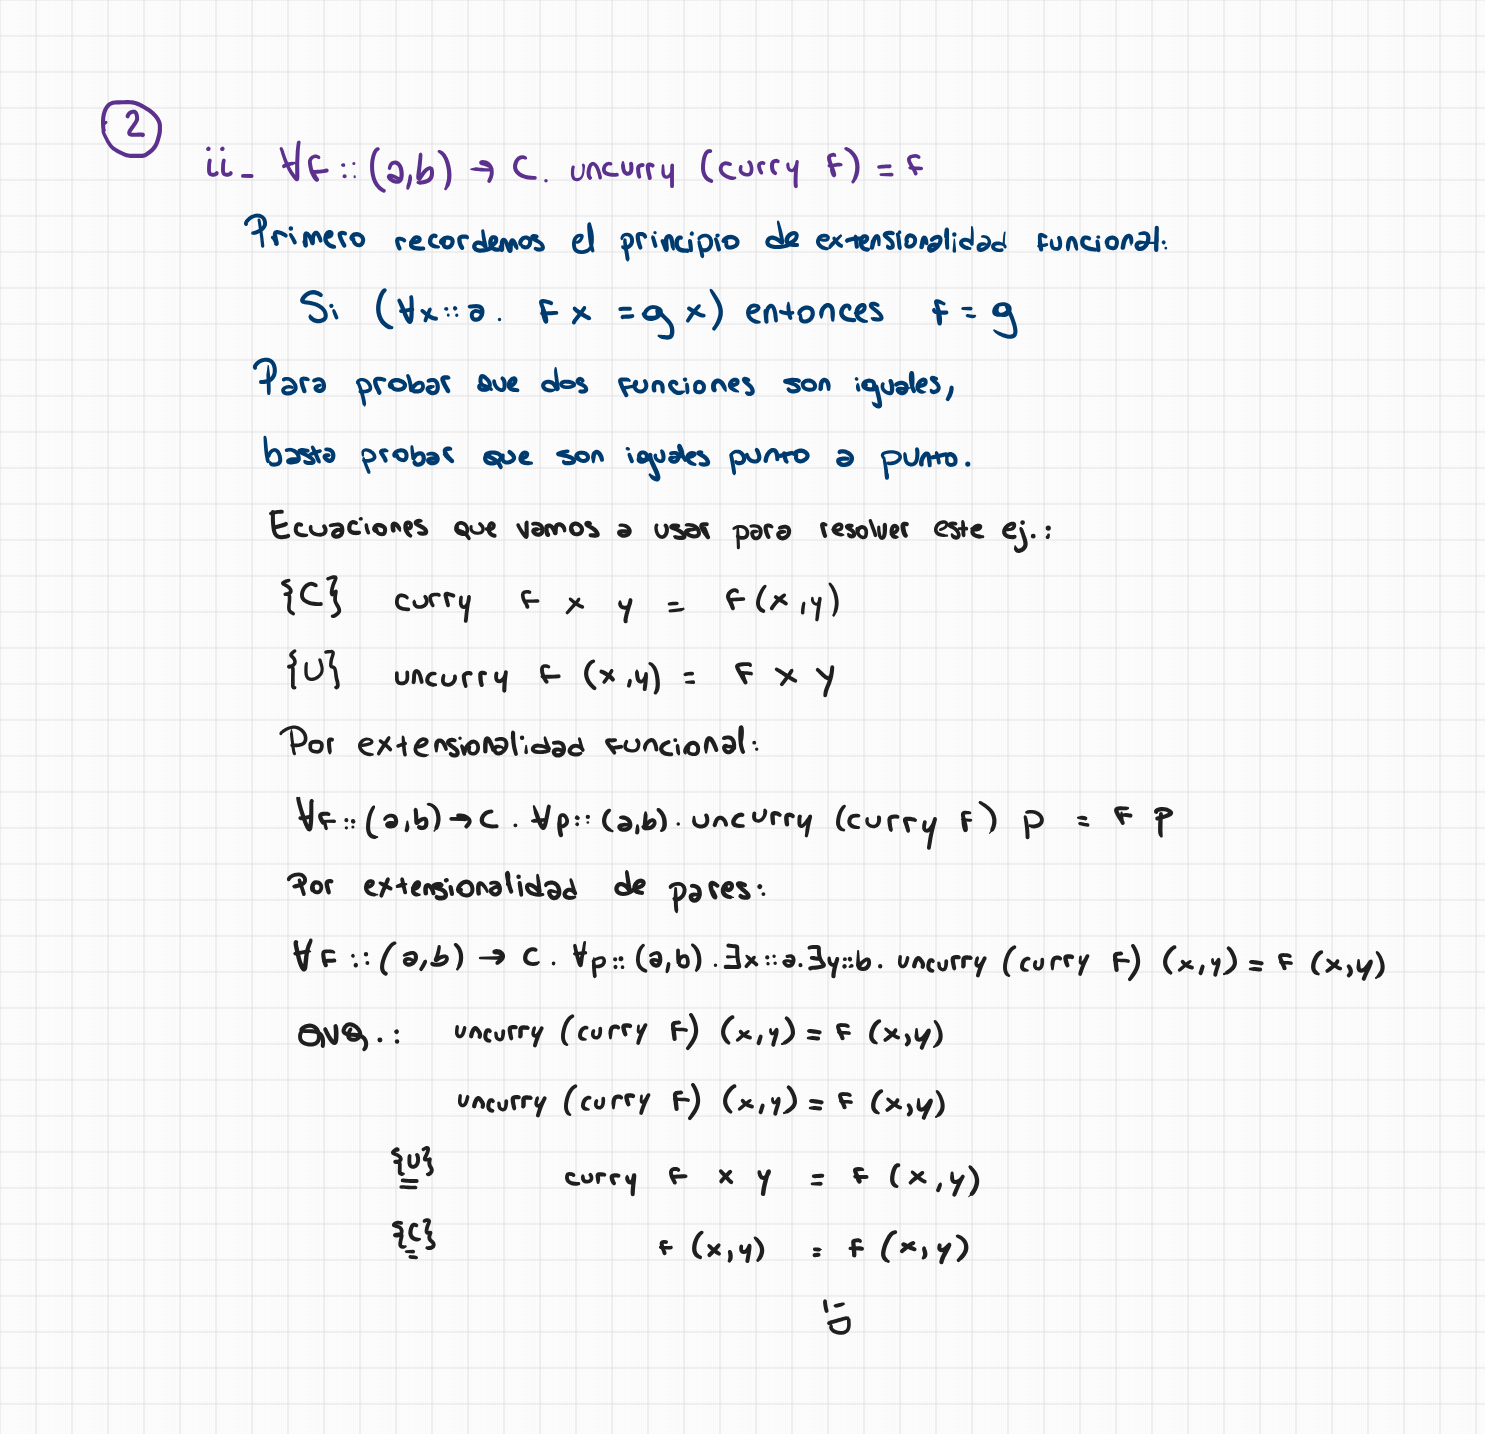 2
ii- ∀f::(a,b) → c. uncurry (curry f) = f
Primero recordemos el principio de extensionalidad funcional:
Si (∀x::a. f x = g x) entonces f = g
Para probar que dos funciones son iguales,
basta probar que son iguales punto a punto.
Ecuaciones que vamos a usar para resolver este ej.:
{C} curry f x y = f(x,y)
{U} uncurry f (x,y) = f x y
Por extensionalidad funcional:
∀f::(a,b) → c. ∀p::(a,b). uncurry (curry f) p = f p
Por extensionalidad de pares:
∀f::(a,b) → c. ∀p::(a,b). ∃x::a. ∃y::b. uncurry (curry f) (x,y) = f (x,y)
QVQ.: uncurry (curry f) (x,y) = f (x,y)
uncurry (curry f) (x,y) = f (x,y)
{U} = curry f x y = f (x,y)
{C} = f (x,y) = f (x,y)
:D